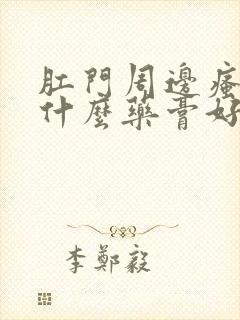 肛門周邊瘙
什麼藥膏好
李鄭毅